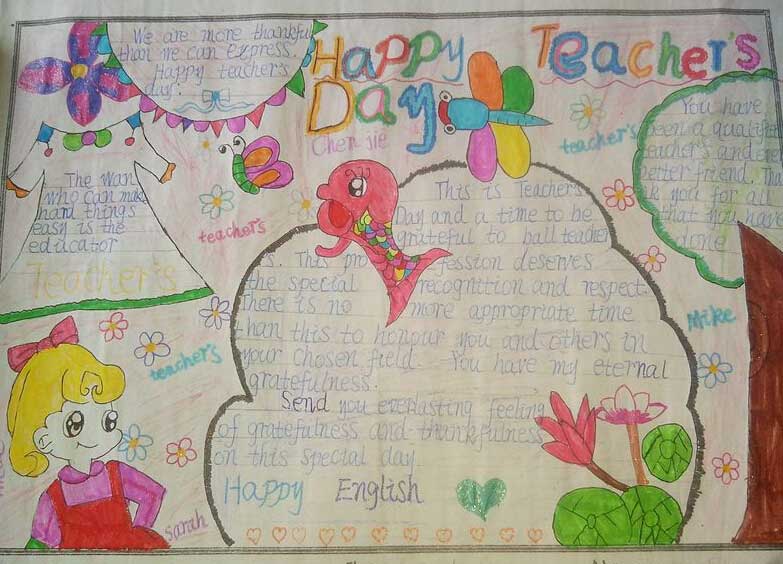 Happy Teacher's
Day
Chen jie
We are more thankful
than we can express.
Happy teacher's
day.
The wan
who can mak
hard things
easy is the
educator
Teacher's
teacher's
teacher's
teacher's
You have
been a quatif
teacher's and en
better friend. Tha
nk you for all
that you has
done
Mike
This is Teachers
Day and a time to be
grateful to ball teache
rs. This pro fession deserves
the special recognition and respect.
There is no more appropriate time
than this to honour you and others in
your chosen field. You have my eternal
gratefulness.
Send you everlasting feeling
of gratefulness and thankfulness
on this special day
Happy English
Sarah